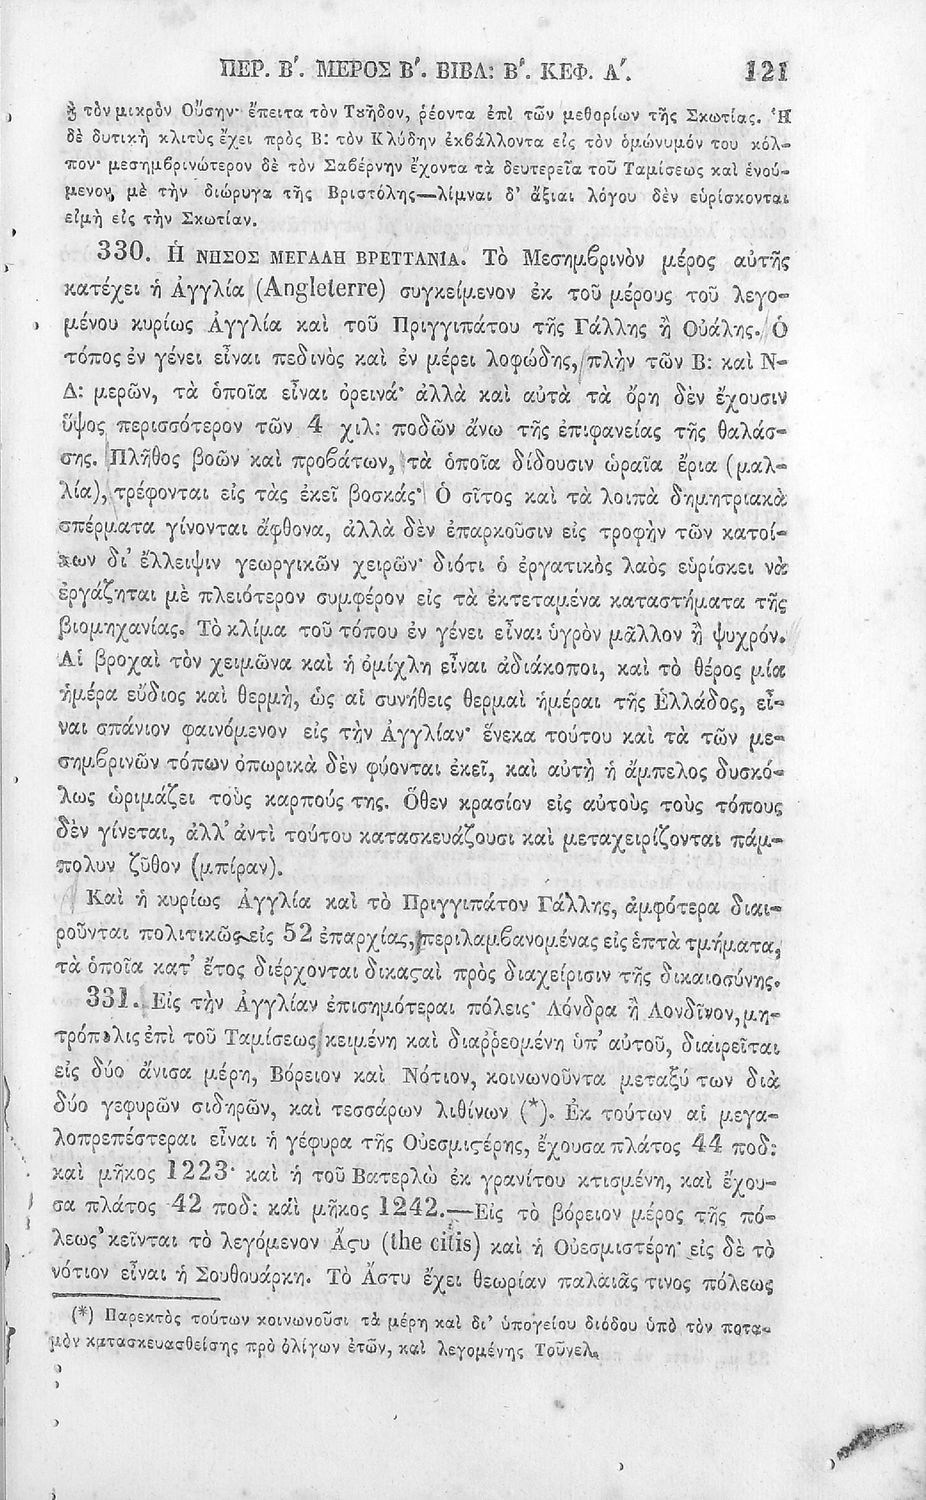 ΠΕΡ. Β΄. ΜΕΡΟΣ Β΄. ΒΙΒΛ: Β΄. ΚΕΦ. Α΄. 121
ϗ τὸν μικρὸν Οὔσην· ἔπειτα τὸν Τȣῆδον, ῥέοντα ἐπὶ τῶν μεθορίων τῆς Σκωτίας. Ἡ
δὲ δυτικὴ κλιτὺς ἔχει πρὸς Β: τὸν Κλύδην ἐκβάλλοντα εἰς τὸν ὁμώνυμόν του κόλ-
πον· μεσημβρινώτερον δὲ τὸν Σαβέρνην ἔχοντα τὰ δευτερεῖα τοῦ Ταμίσεως καὶ ἑνού-
μενον, μὲ τὴν διώρυγα τῆς Βριστόλης—λίμναι δ' ἄξιαι λόγου δὲν εὑρίσκονται
εἰμὴ εἰς τὴν Σκωτίαν.
330. Ἡ ΝΗΣΟΣ ΜΕΓΑΛΗ ΒΡΕΤΤΑΝΙΑ. Τὸ Μεσημβρινὸν μέρος αὐτῆς
κατέχει ἡ Ἀγγλία (Angleterre) συγκείμενον ἐκ τοῦ μέρους τοῦ λεγο-
μένου κυρίως Ἀγγλία καὶ τοῦ Πριγγιπάτου τῆς Γάλλης ἢ Οὐάλης. Ὁ
τόπος ἐν γένει εἶναι πεδινὸς καὶ ἐν μέρει λοφώδης, πλὴν τῶν Β: καὶ Ν-
Δ: μερῶν, τὰ ὁποῖα εἶναι ὀρεινά· ἀλλὰ καὶ αὐτὰ τὰ ὄρη δὲν ἔχουσιν
ὕψος περισσότερον τῶν 4 χιλ: ποδῶν ἄνω τῆς ἐπιφανείας τῆς θαλάσ-
σης. Πλῆθος βοῶν καὶ προβάτων, τὰ ὁποῖα δίδουσιν ὡραῖα ἔρια (μαλ-
λία), τρέφονται εἰς τὰς ἐκεῖ βοσκάς· Ὁ σῖτος καὶ τὰ λοιπὰ δημητριακὰ
σπέρματα γίνονται ἄφθονα, ἀλλὰ δὲν ἐπαρκοῦσιν εἰς τροφὴν τῶν κατοί-
κων δι' ἔλλειψιν γεωργικῶν χειρῶν· διότι ὁ ἐργατικὸς λαὸς εὑρίσκει νὰ
ἐργάζηται μὲ πλειότερον συμφέρον εἰς τὰ ἐκτεταμένα καταστήματα τῆς
βιομηχανίας. Τὸ κλίμα τοῦ τόπου ἐν γένει εἶναι ὑγρὸν μᾶλλον ἢ ψυχρόν.
Αἱ βροχαὶ τὸν χειμῶνα καὶ ἡ ὀμίχλη εἶναι ἀδιάκοποι, καὶ τὸ θέρος μία
ἡμέρα εὔδιος καὶ θερμὴ, ὡς αἱ συνήθεις θερμαὶ ἡμέραι τῆς Ἑλλάδος, εἶ-
ναι σπάνιον φαινόμενον εἰς τὴν Ἀγγλίαν· ἕνεκα τούτου καὶ τὰ τῶν με-
σημβρινῶν τόπων ὀπωρικὰ δὲν φύονται ἐκεῖ, καὶ αὐτὴ ἡ ἄμπελος δυσκό-
λως ὡριμάζει τοὺς καρπούς της. Ὅθεν κρασίον εἰς αὐτοὺς τοὺς τόπους
δὲν γίνεται, ἀλλ' ἀντὶ τούτου κατασκευάζουσι καὶ μεταχειρίζονται πάμ-
πολυν ζῦθον (μπίραν).
Καὶ ἡ κυρίως Ἀγγλία καὶ τὸ Πριγγιπάτον Γάλλης, ἀμφότερα διαι-
ροῦνται πολιτικῶς εἰς 52 ἐπαρχίας, περιλαμβανομένας εἰς ἑπτὰ τμήματα,
τὰ ὁποῖα κατ' ἔτος διέρχονται δικαϛαὶ πρὸς διαχείρισιν τῆς δικαιοσύνης.
331. Εἰς τὴν Ἀγγλίαν ἐπισημότεραι πόλεις· Λόνδρα ἢ Λονδῖνον, μη-
τρόπολις ἐπὶ τοῦ Ταμίσεως κειμένη καὶ διαῤῥεομένη ὑπ' αὐτοῦ, διαιρεῖται
εἰς δύο ἄνισα μέρη, Βόρειον καὶ Νότιον, κοινωνοῦντα μεταξύ των διὰ
δύο γεφυρῶν σιδηρῶν, καὶ τεσσάρων λιθίνων (*). Ἐκ τούτων αἱ μεγα-
λοπρεπέστεραι εἶναι ἡ γέφυρα τῆς Οὐεσμιϛέρης, ἔχουσα πλάτος 44 ποδ:
καὶ μῆκος 1223· καὶ ἡ τοῦ Βατερλὼ ἐκ γρανίτου κτισμένη, καὶ ἔχου-
σα πλάτος 42 ποδ: καὶ μῆκος 1242.—Εἰς τὸ βόρειον μέρος τῆς πό-
λεως κεῖνται τὸ λεγόμενον Ἄϛυ (the citis) καὶ ἡ Οὐεσμιστέρη· εἰς δὲ τὸ
νότιον εἶναι ἡ Σουθουάρκη. Τὸ Ἄστυ ἔχει θεωρίαν παλαιᾶς τινος πόλεως
(*) Παρεκτὸς τούτων κοινωνοῦσι τὰ μέρη καὶ δι' ὑπογείου διόδου ὑπὸ τὸν ποτα-
μὸν κατασκευασθείσης πρὸ ὀλίγων ἐτῶν, καὶ λεγομένης Τοῦνελ.